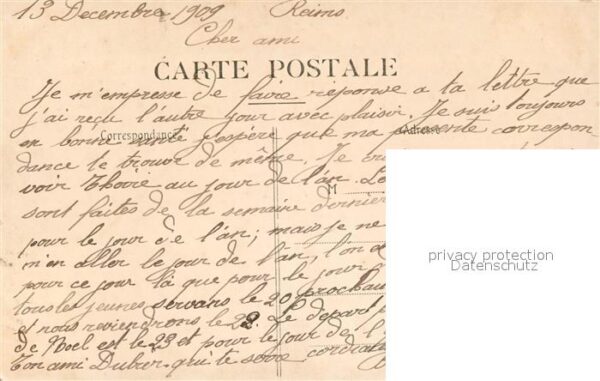 13 Decembre 1909 Reims
Cher ami
CARTE POSTALE
Je m'empresse de faire reponse a ta lettre que
j'ai reçu l'autre jour avec plaisir. Je suis toujours
Correspondance
Adresse
en bonne santé j'espère que ma presente correspon
dance te trouve de même. Je
voir Thoiré au jour de l'an.
M
sont faites de la semaine
pour le jour de l'an; mais je ne
m'en aller le jour de l'an, l'on
pour ce jour là que pour le
tous les jeunes servans le 20 prochain
et nous reviendrons le 28. Le depart
de Noel est le 23 et pour le jour de
Ton ami qui te serre
privacy protection
Datenschutz